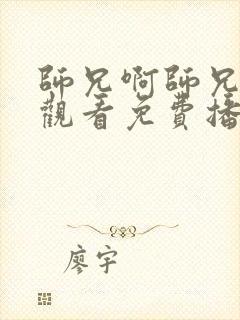 師兄啊師兄
觀看免費播
廖宇